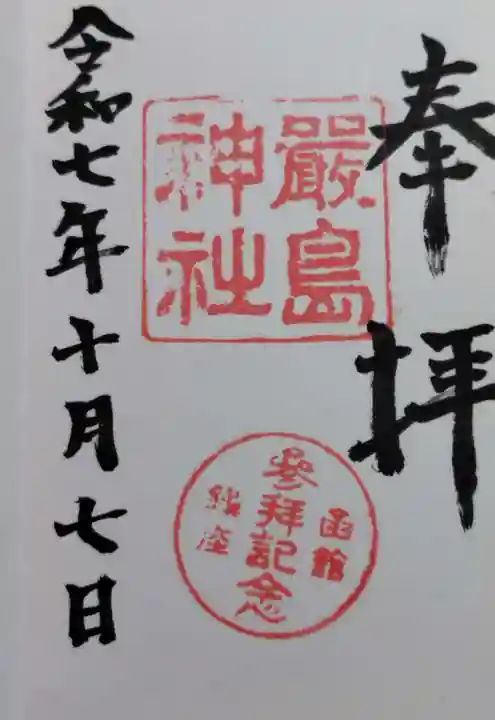 奉拝
嚴島
神社
函館
參拜記念
銭座
令和七年十月七日